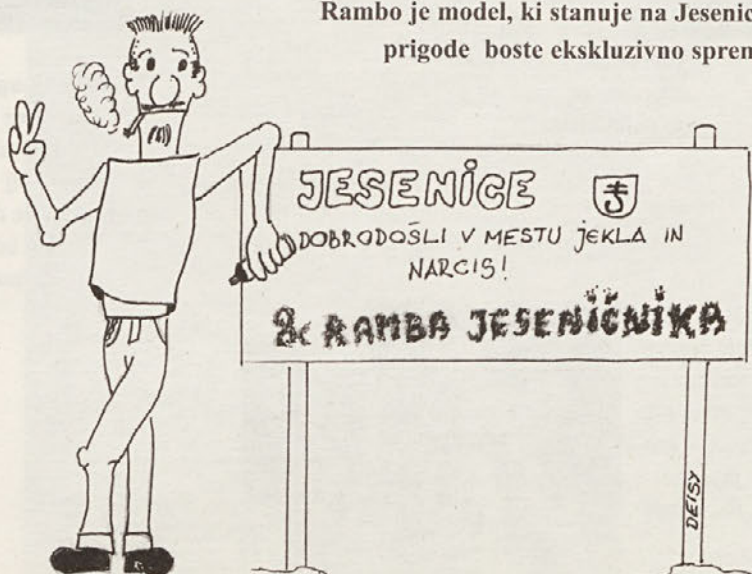 Rambo je model, ki stanuje na Jesenic
prigode boste ekskluzivno sprem
JESENICE
DOBRODOŠLI V MESTU JEKLA IN
NARCIS!
& RAMBA JESENIČNIKA
DEISY